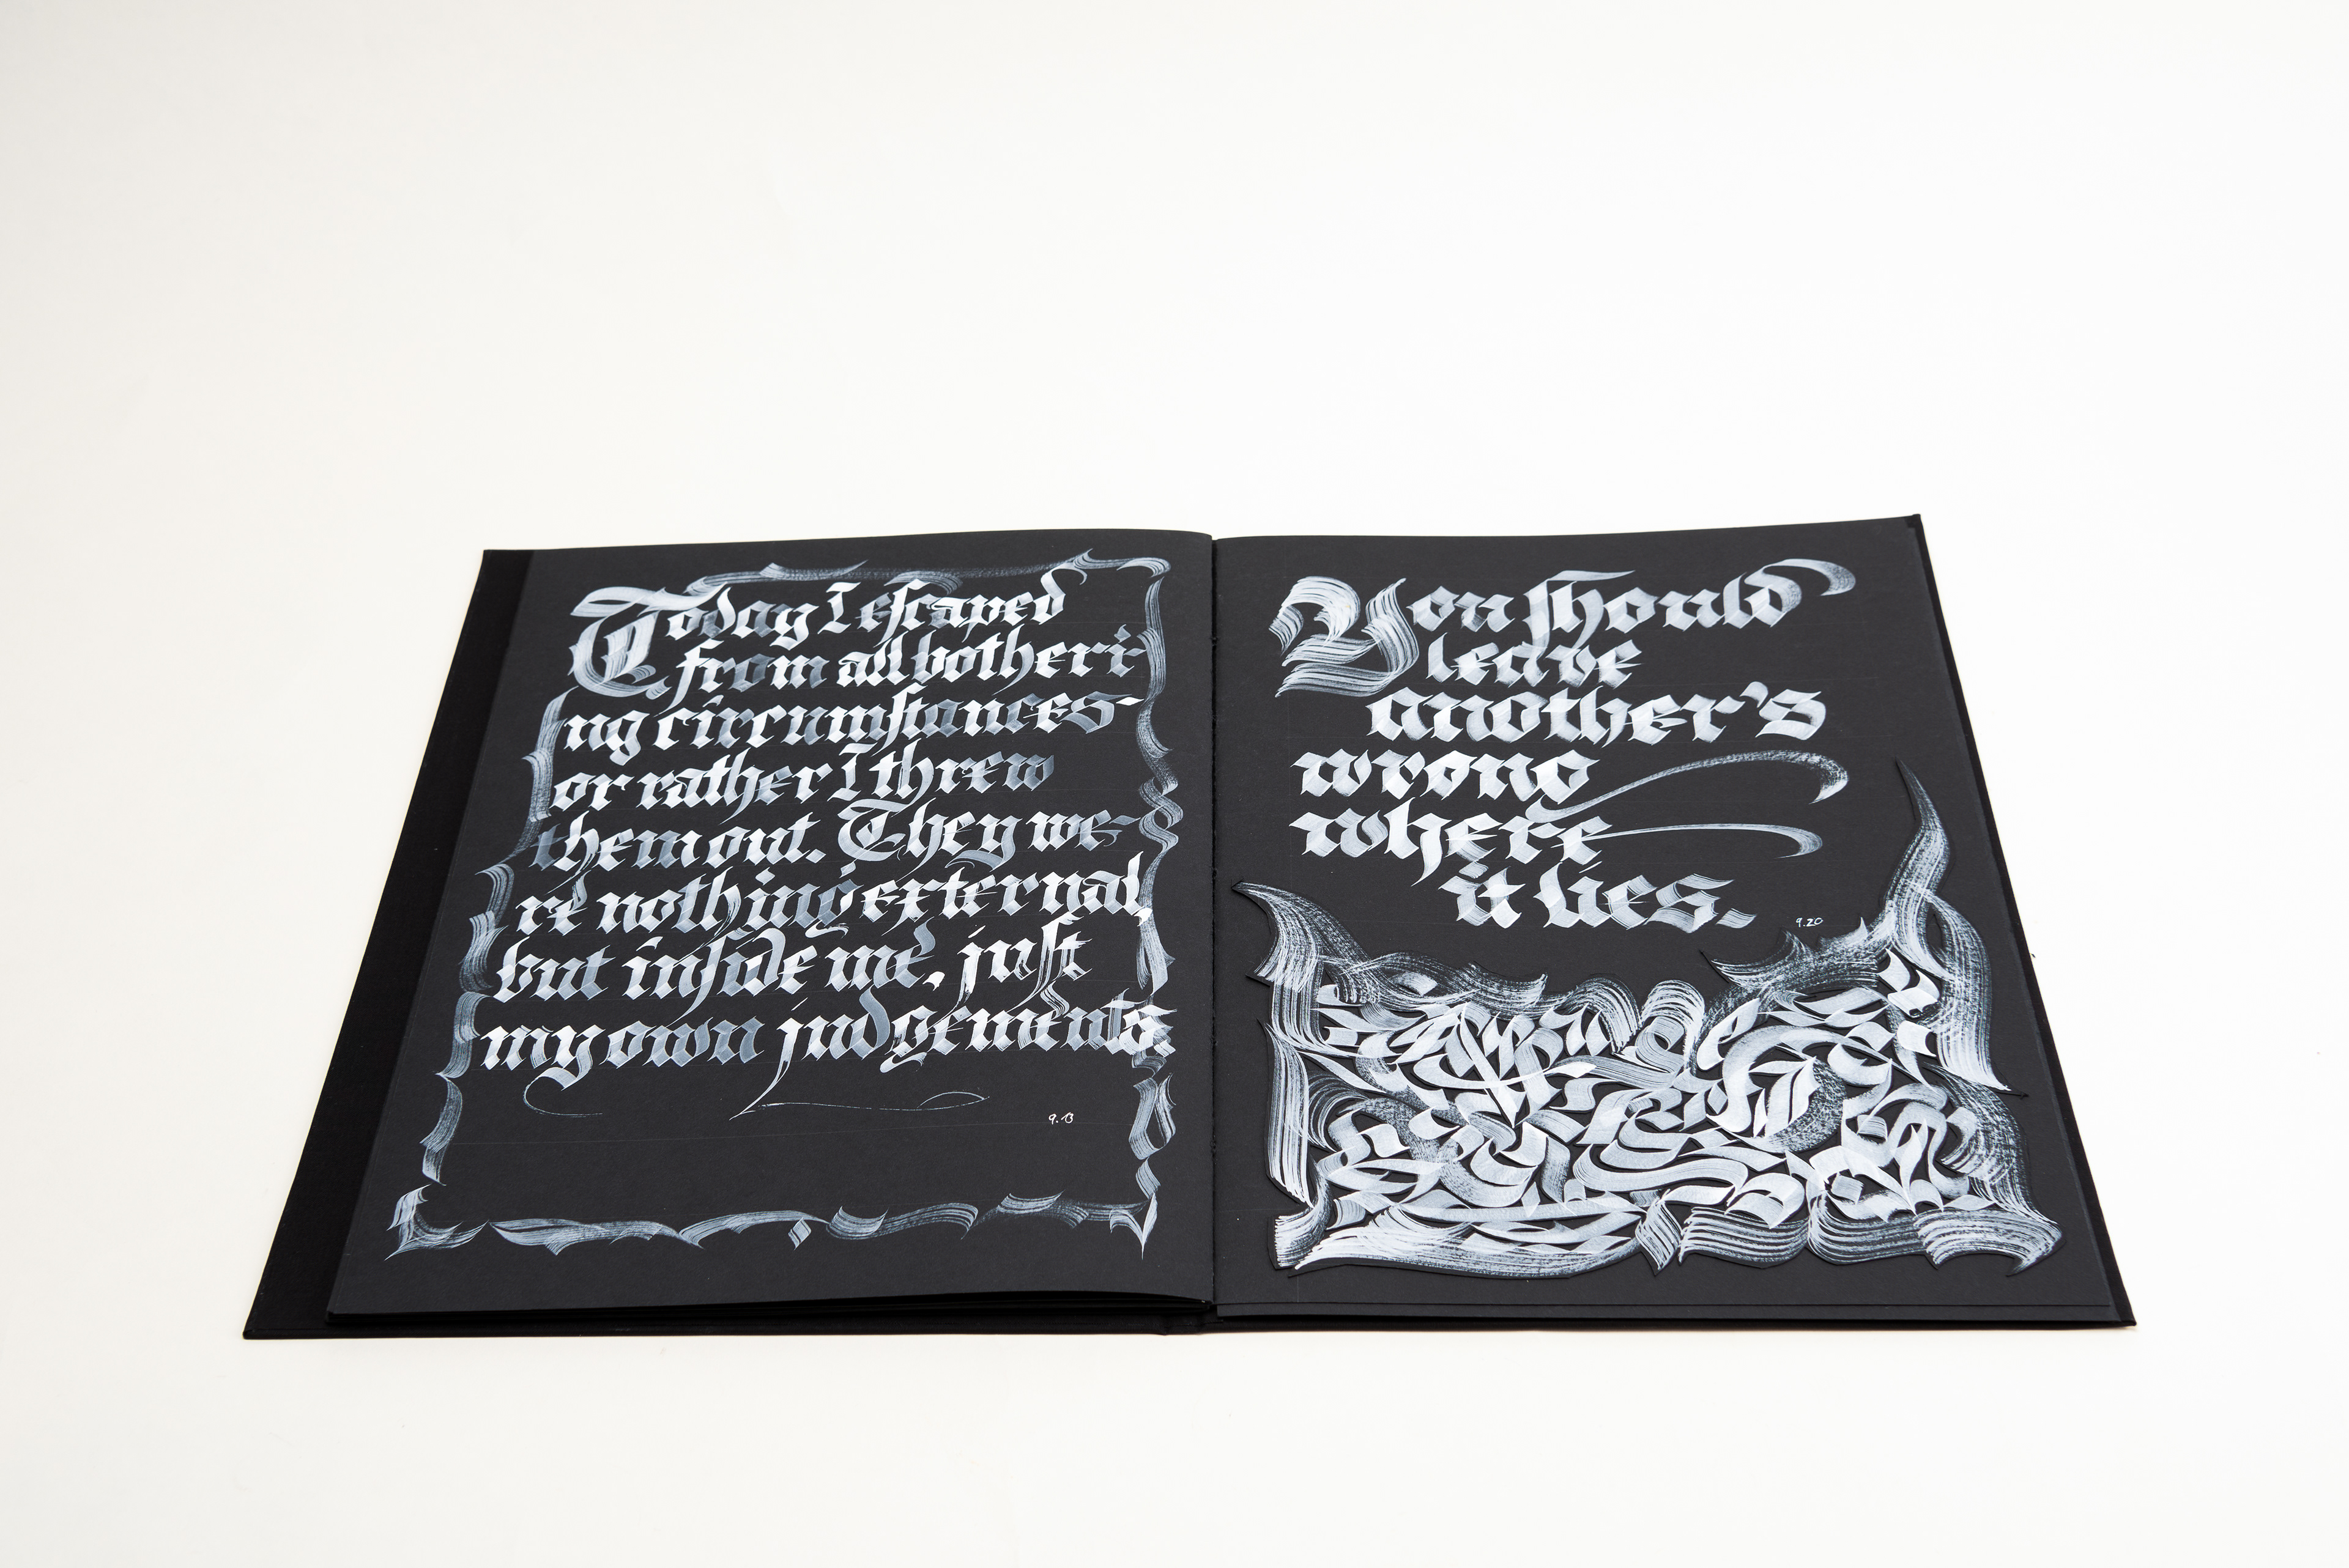 Today I escaped
from all botheri-
ng circumstances-
or rather I threw
them out. They we-
re nothing external,
but inside me, just
my own judgements.
9.13
You should
leave
another's
wrong
where
it lies.
9.20